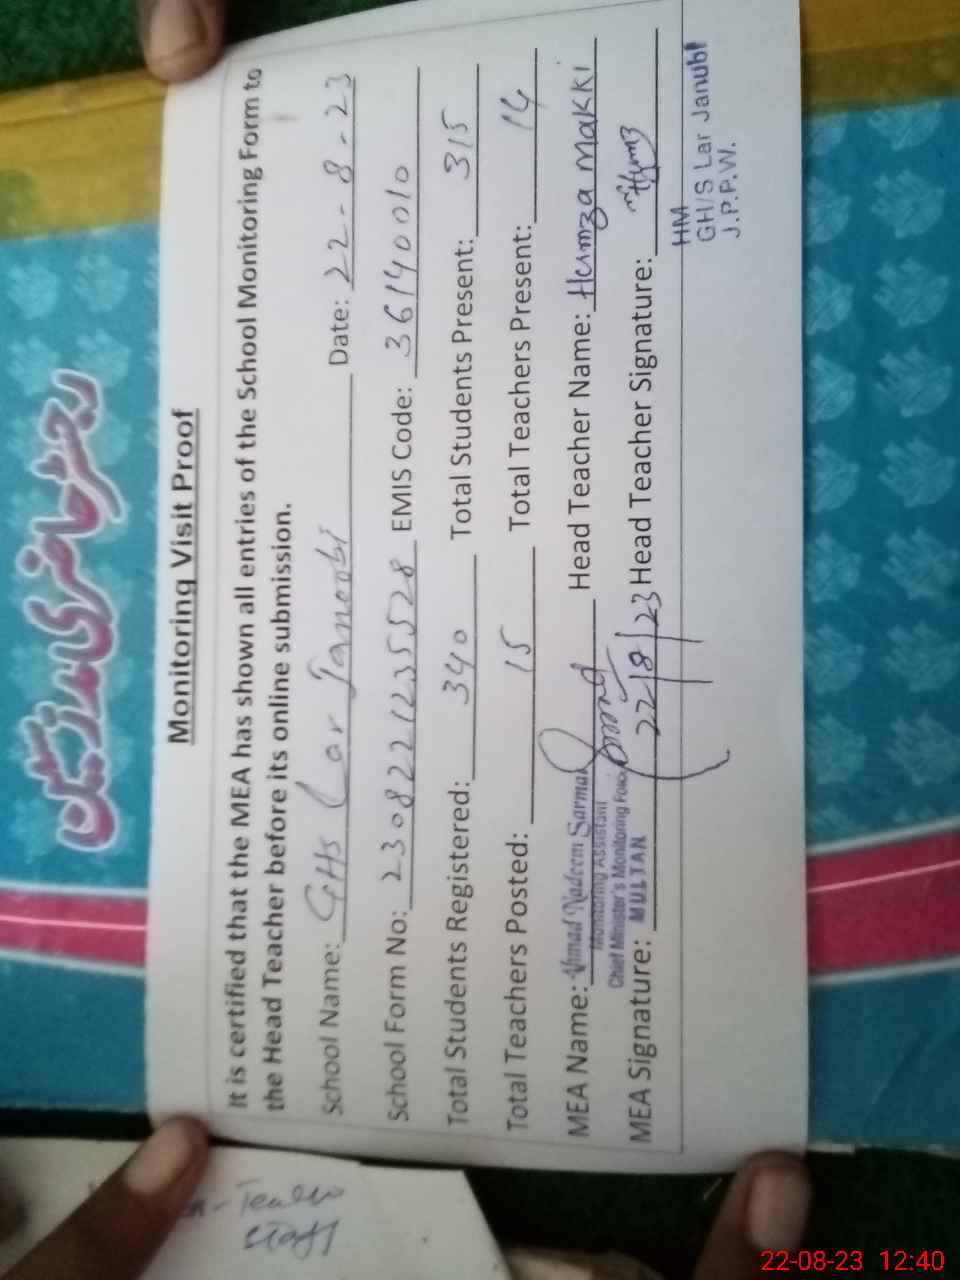 رجسٹر حاضری مدرسین
Monitoring Visit Proof
It is certified that the MEA has shown all entries of the School Monitoring Form to
the Head Teacher before its online submission.
School Name: GHS Lar Janoobi Date: 22-8-23
School Form No: 2308221235528 EMIS Code: 361140010
Total Students Registered: 340 Total Students Present: 315
Total Teachers Posted: 15 Total Teachers Present: 14
MEA Name: Ahmad Nadeem Sarmad Head Teacher Name: Hamza Makki
Monitoring Assistant
Chief Minister's Monitoring Force
MULTAN
MEA Signature: 22/8/23 Head Teacher Signature:
HM
GH/S Lar Janubi
J.P.P.W.
Staff
22-08-23 12:40